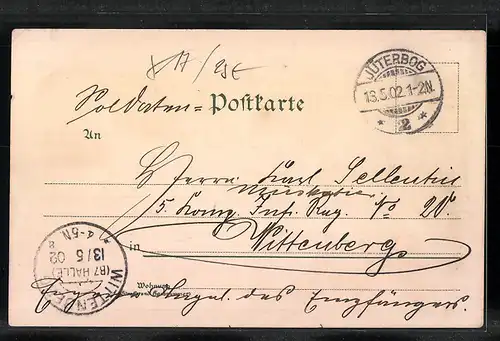 Soldaten = Postkarte
JÜTERBOG
13.5.02.1-2N.
* 2 *
An
Herrn Karl Sellentin
Musketier
5. Komp. Inf. Reg. No 20.
in Wittenberg
WITTENBERG
(BZ HALLE)
13/5 02
4-5N
Wohnung
Eigene Angel. des Empfängers.